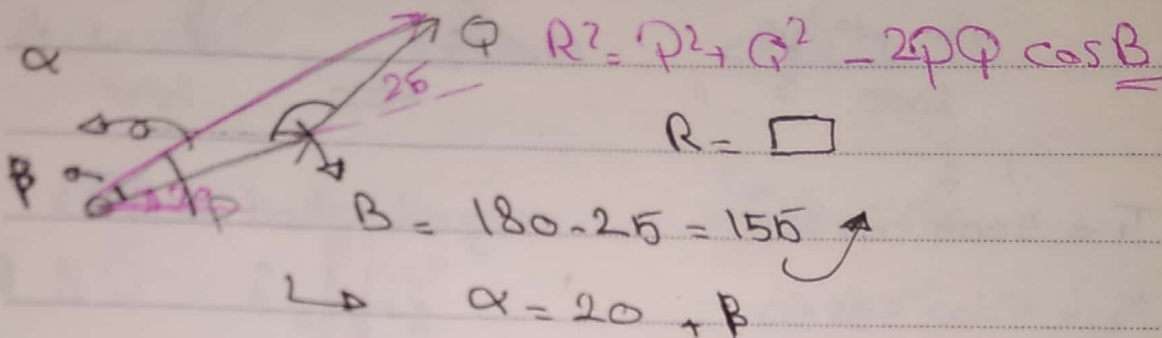 α Q R² = P² + Q² - 2PQ cos B
25
R = 
β 20 P B = 180 - 25 = 155
α = 20 + β